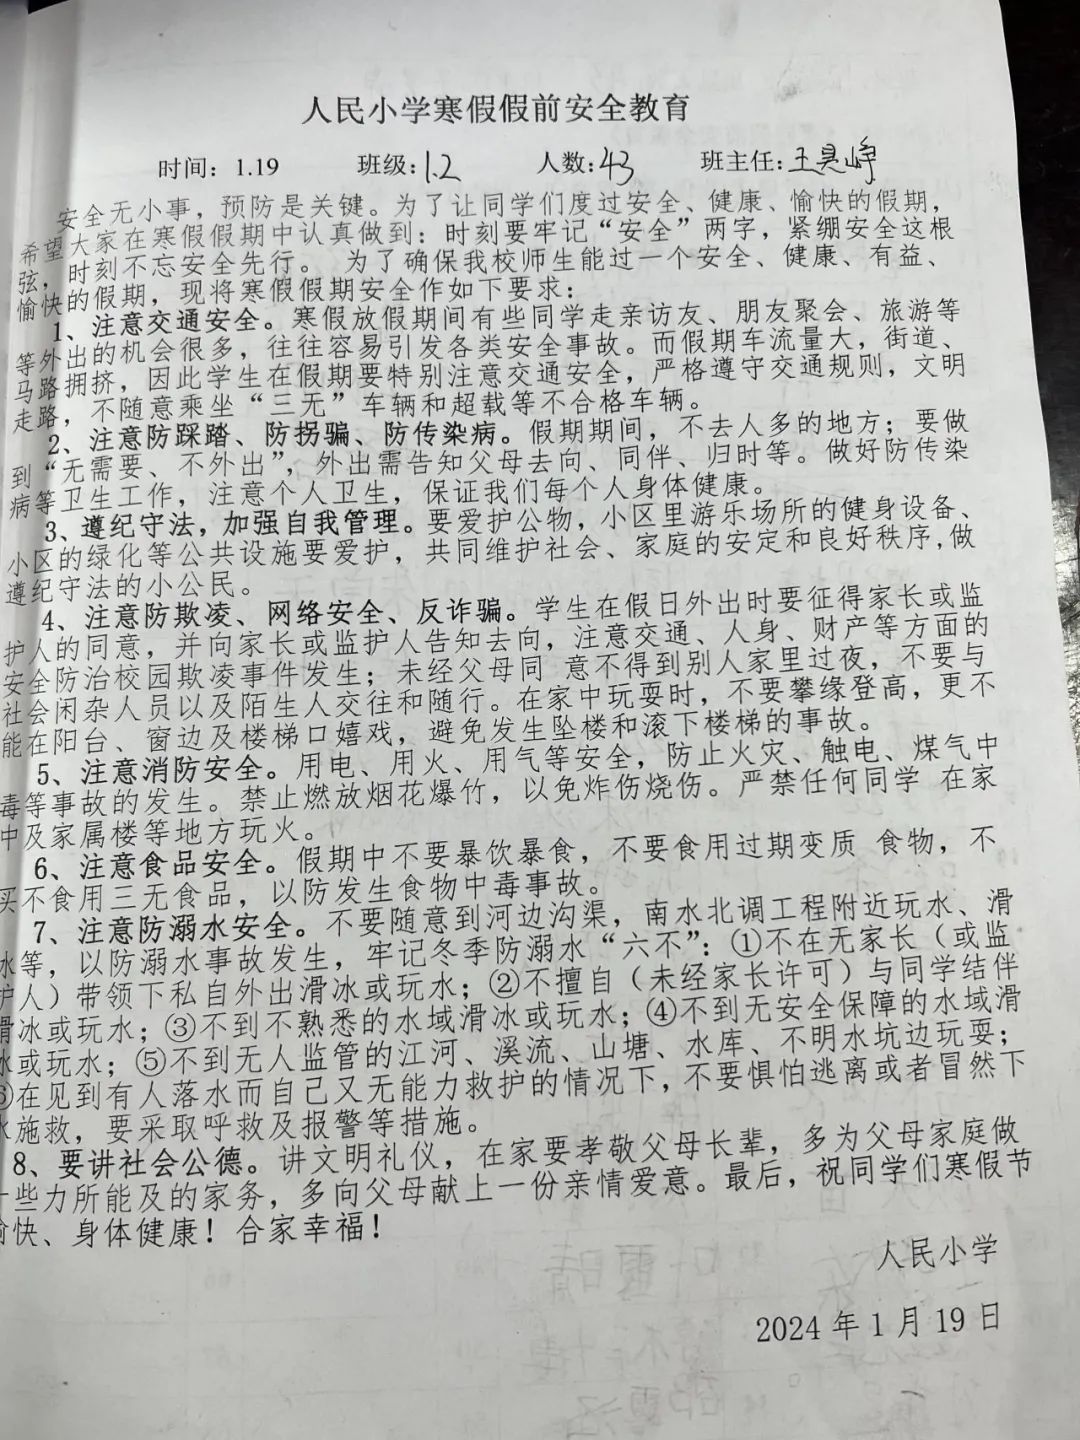 人民小学寒假假前安全教育
时间：1.19 班级：1.2 人数：43 班主任：王
安全无小事，预防是关键。为了让同学们度过安全、健康、愉快的假期，
希望大家在寒假假期中认真做到：时刻要牢记“安全”两字，紧绷安全这根
弦，时刻不忘安全先行。 为了确保我校师生能过一个安全、健康、有益、
愉快的假期，现将寒假假期安全作如下要求：
1、注意交通安全。寒假放假期间有些同学走亲访友、朋友聚会、旅游等
等外出的机会很多，往往容易引发各类安全事故。而假期车流量大，街道、
马路拥挤，因此学生在假期要特别注意交通安全，严格遵守交通规则，文明
走路，不随意乘坐“三无”车辆和超载等不合格车辆。
2、注意防踩踏、防拐骗、防传染病。假期期间，不去人多的地方；要做
到“无需要、不外出”，外出需告知父母去向、同伴、归时等。做好防传染
病等卫生工作，注意个人卫生，保证我们每个人身体健康。
3、遵纪守法，加强自我管理。要爱护公物，小区里游乐场所的健身设备、
小区的绿化等公共设施要爱护，共同维护社会、家庭的安定和良好秩序,做
遵纪守法的小公民。
4、注意防欺凌、网络安全、反诈骗。学生在假日外出时要征得家长或监
护人的同意，并向家长或监护人告知去向，注意交通、人身、财产等方面的
安全防治校园欺凌事件发生；未经父母同 意不得到别人家里过夜，不要与
社会闲杂人员以及陌生人交往和随行。在家中玩耍时，不要攀缘登高，更不
能在阳台、窗边及楼梯口嬉戏，避免发生坠楼和滚下楼梯的事故。
5、注意消防安全。用电、用火、用气等安全，防止火灾、触电、煤气中
毒等事故的发生。禁止燃放烟花爆竹，以免炸伤烧伤。严禁任何同学 在家
中及家属楼等地方玩火。
6、注意食品安全。假期中不要暴饮暴食，不要食用过期变质 食物，不
买不食用三无食品，以防发生食物中毒事故。
7、注意防溺水安全。不要随意到河边沟渠，南水北调工程附近玩水、滑
冰等，以防溺水事故发生，牢记冬季防溺水“六不”：①不在无家长（或监
护人）带领下私自外出滑冰或玩水；②不擅自（未经家长许可）与同学结伴
滑冰或玩水；③不到不熟悉的水域滑冰或玩水；④不到无安全保障的水域滑
冰或玩水；⑤不到无人监管的江河、溪流、山塘、水库、不明水坑边玩耍；
⑥在见到有人落水而自己又无能力救护的情况下，不要惧怕逃离或者冒然下
水施救，要采取呼救及报警等措施。
8、要讲社会公德。讲文明礼仪，在家要孝敬父母长辈，多为父母家庭做
一些力所能及的家务，多向父母献上一份亲情爱意。最后，祝同学们寒假节
愉快、身体健康！合家幸福！
人民小学
2024 年 1 月 19 日